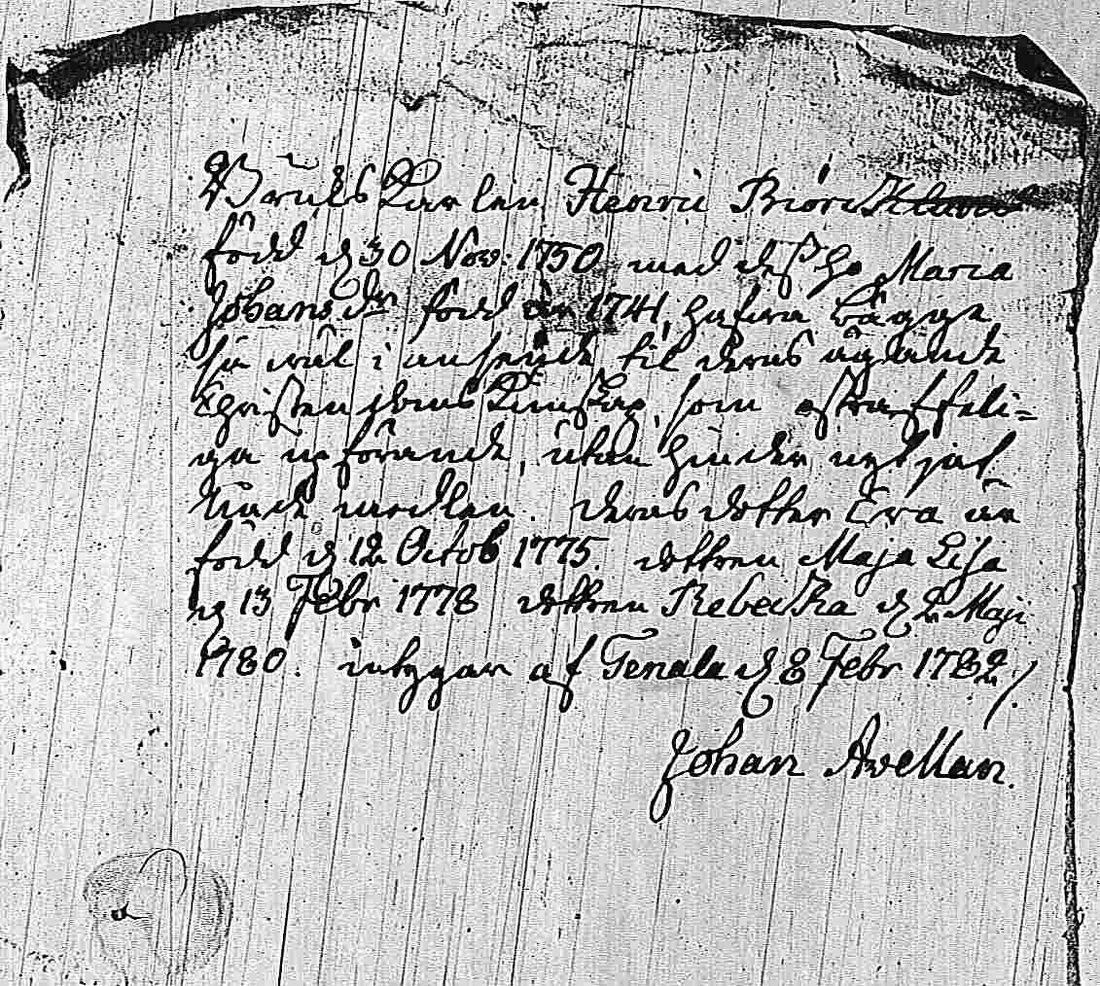 Bruks Karlen Henric Biörck
född d. 30 Nov. 1750 med dess ho Maria
Johans dr född år 1741, hafwa bägge
så wäl i anseende til deras ägande
Christendoms Kunskap, som ostraffeli-
ga upförande, utan hinder
deras dotter Eva är
född d. 12 Octob 1775. dottren Maja Lisa
d. 13 Febr 1778 dottren Rebecka d. 2 Maji
1780. intygar af Tenala d. 8 Febr 1782
Johan Avellan.